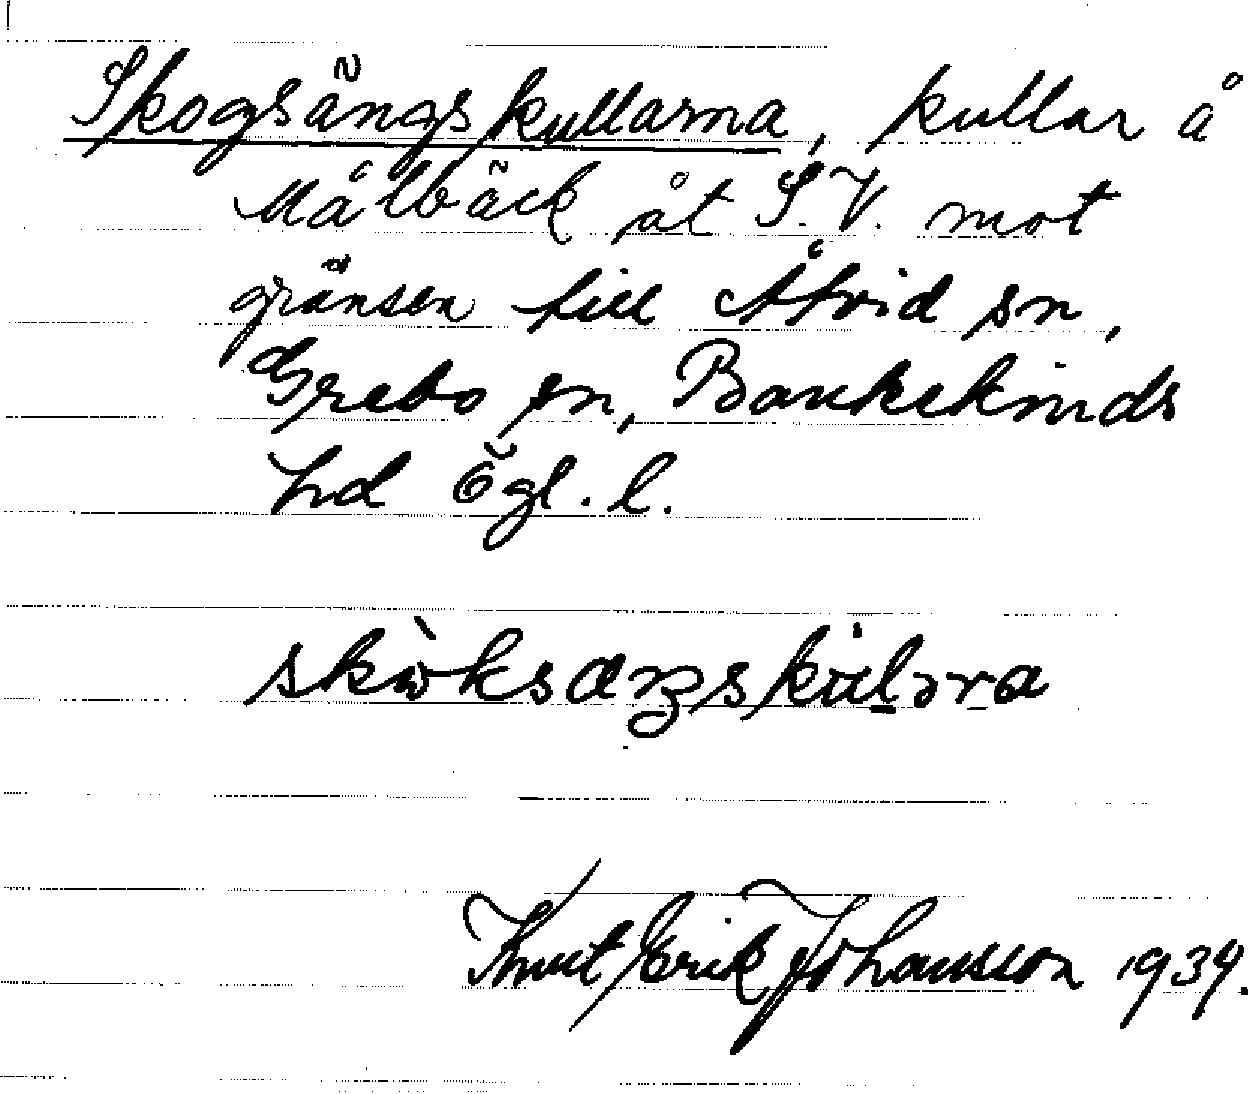 Skogsängskullarna, kullar å
Målbäck åt S.V. mot
gränsen till Åtvid sn,
Grebo sn, Bankekinds
hd Ögl. l.
Knut Erik Johansson 1939.